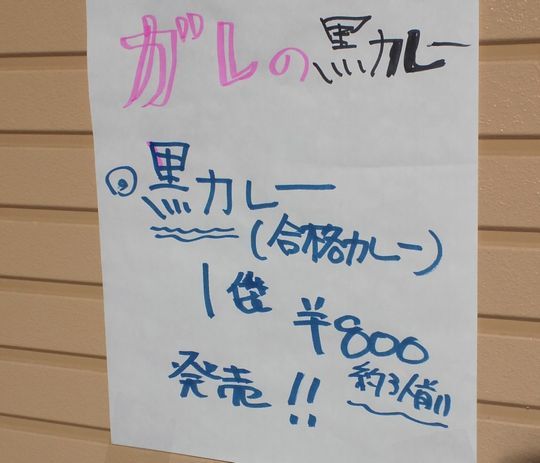 ガレの黒カレー
黒カレー
(合格カレー)
1袋
¥800
発売!! 約3人前